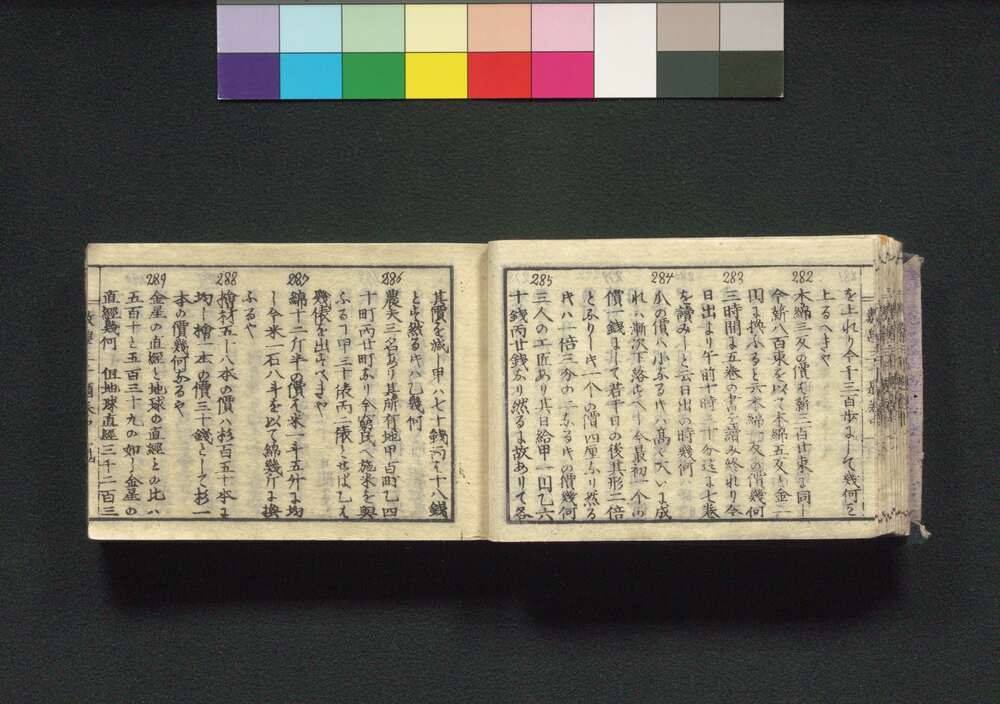 を上れり今千三百歩にして幾何を
上るへきや
282
木綿三反の價ハ薪三百廿束に同し
今薪八百束を以て木綿五反と金二
円に換ふると云木綿一反の價幾何
283
三時間に五巻の書を讀み終れり今
日出より午前十時三十分迄に七巻
を讀みしと云日出の時幾何
284
瓜の價ハ小なる片ハ高く大いに成
れハ漸次下落すへし今最初一个の
價一銭にして若干日の後其形二倍
となりし片一个の價四厘なり然る
片ハ一倍三分の一なる片の價幾何
285
三人の工匠あり其日給甲一円乙六
十銭丙廿銭なり然るに故ありて各
其價を減し甲ハ七十銭丙ハ十八銭
とす然る片ハ乙幾何
286
農夫三名あり其所有地甲百町乙四
十町丙廿町なり今窮民へ施米を與
ふるヿ甲三十俵丙二俵とせは乙ハ
幾俵を出すへきや
287
綿十二斤半の價ハ米一斗五升に均
し今米一石八斗を以て綿幾斤に換
ふるや
288
檜材五十八本の價ハ杉百五十本に
均し檜一本の價三十銭として杉一
本の價幾何なるや
289
金星の直經と地球の直經との比ハ
五百十と五百三十九の如し金星の
直經幾何 但地球直經三千二百三